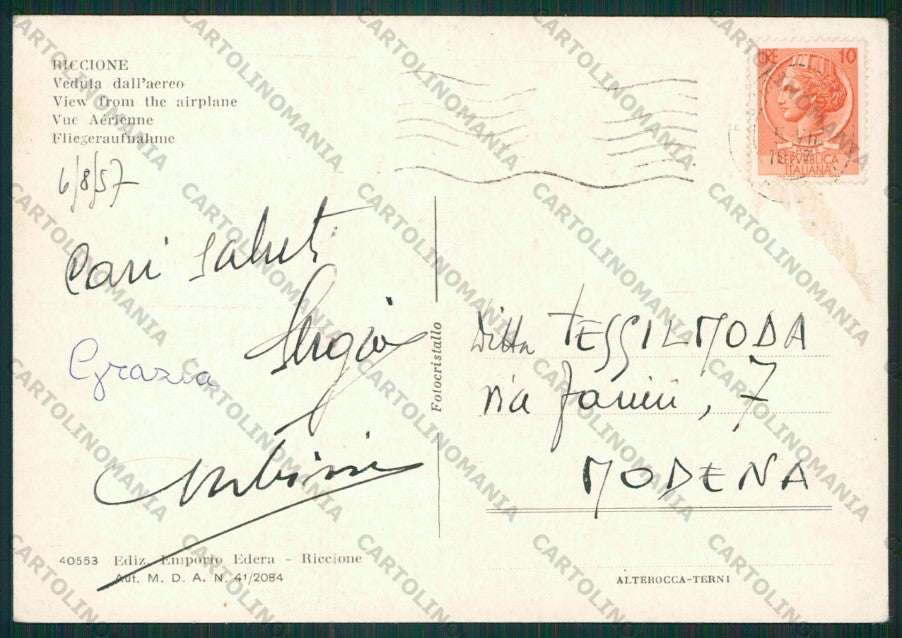 RICCIONE
Veduta dall'aereo
View from the airplane
Vue Aérienne
Fliegeraufnahme
6/8/57
Cari saluti
Sergio
Grazia
40553 Ediz. Emporio Edera - Riccione
Aut. M. D. A. N. 41/2084
Fotocristallo
LIRE 10
REPVBBLICA
ITALIANA
Ditta TESSILMODA
via Fanin, 7
MODENA
ALTEROCCA-TERNI
CARTOLINOMANIA